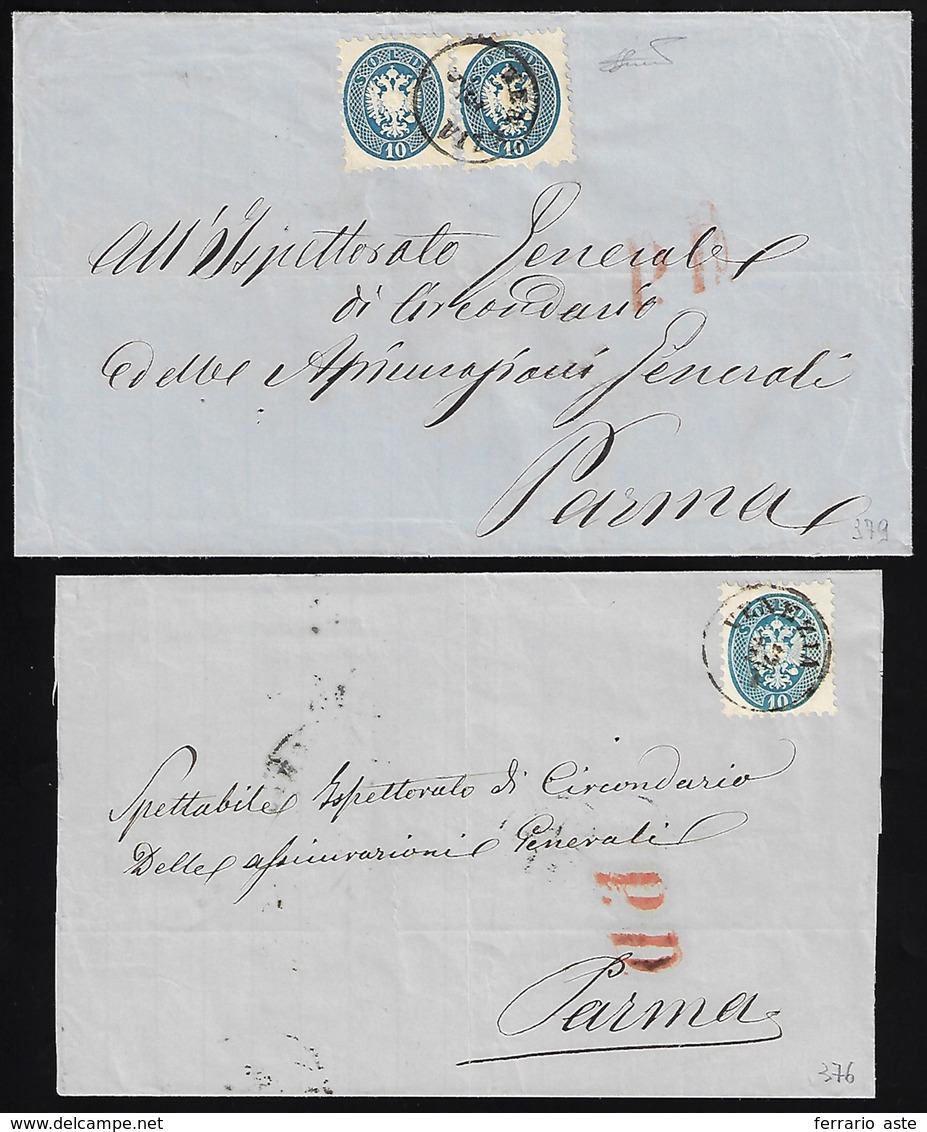 SOLDI 10 SOLDI 10
VENEZIA
P.D.
All'Ispettorato Generale
di Circondario
delle Assicurazioni Generali
Parma
379
SOLDI 10
VENEZIA
Spettabile Ispettorato di Circondario
Delle Assicurazioni Generali
P.D.
Parma
376
ferrario aste